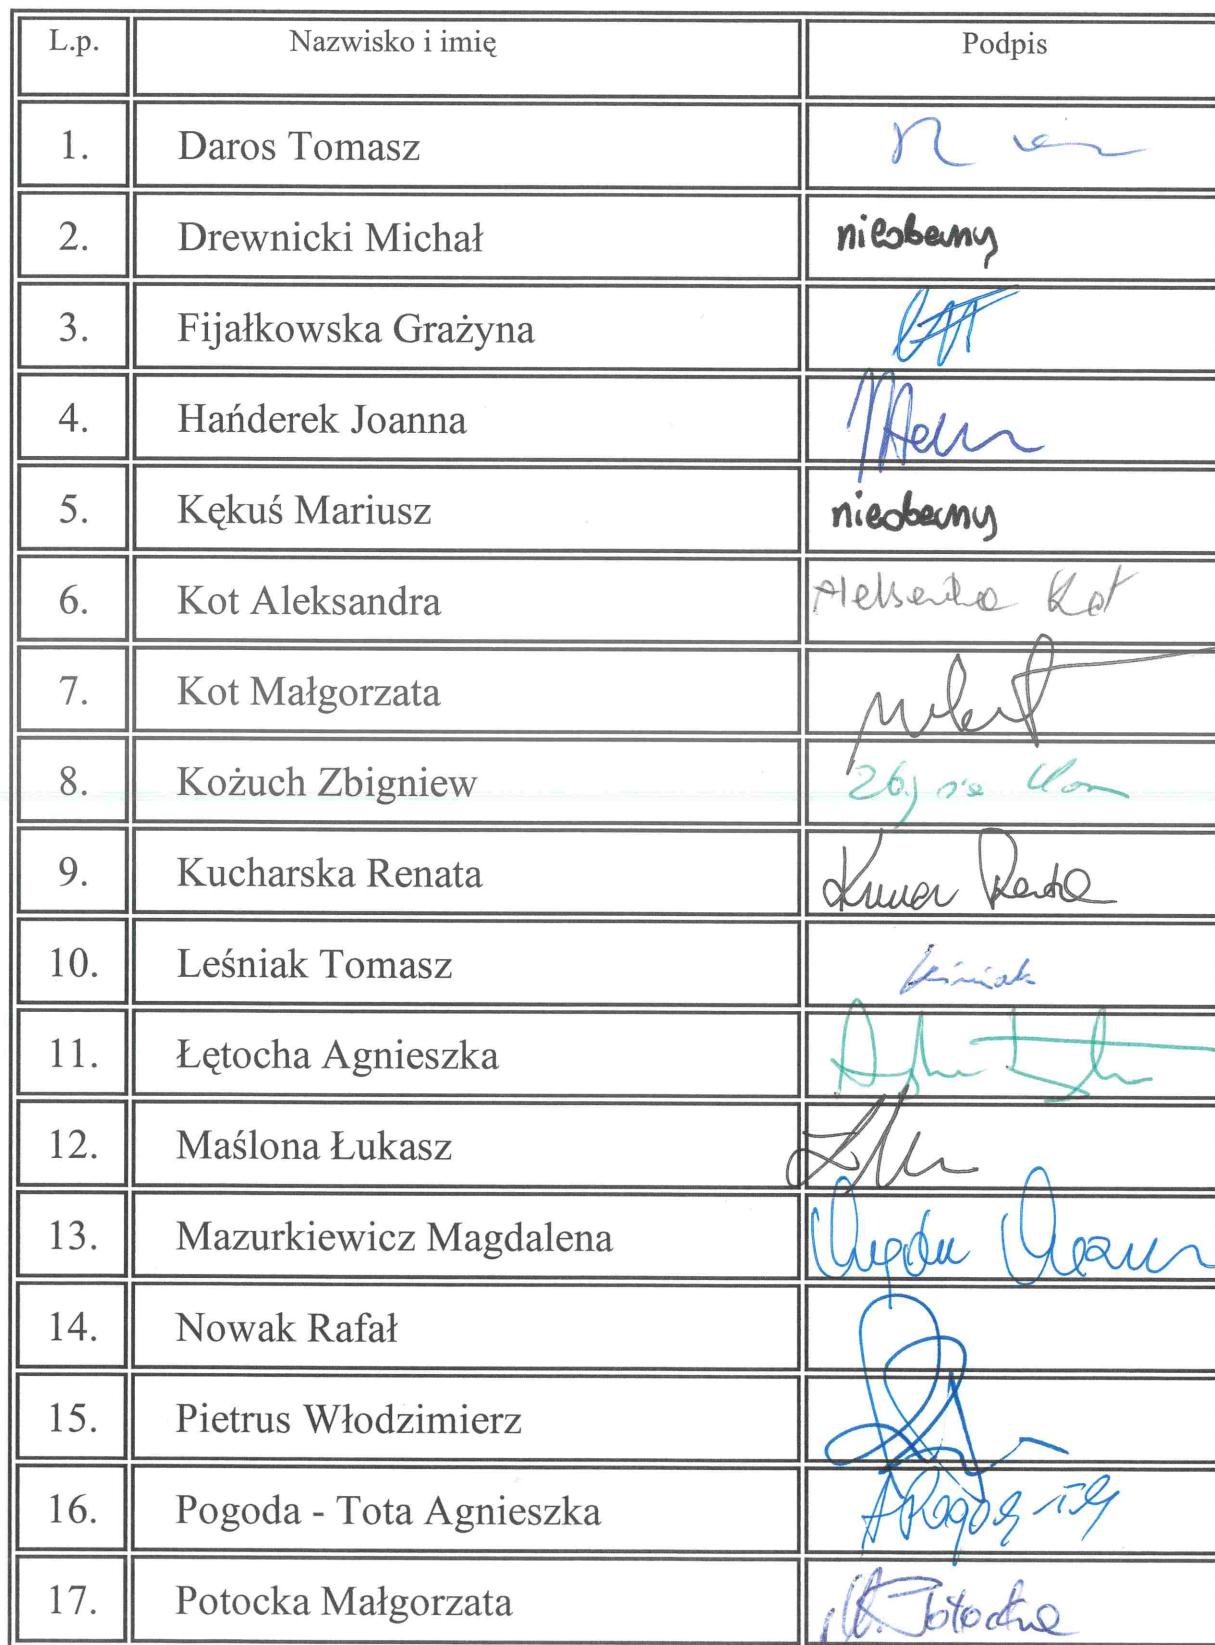 L.p. Nazwisko i imię Podpis
1. Daros Tomasz
2. Drewnicki Michał nieobecny
3. Fijałkowska Grażyna
4. Hańderek Joanna
5. Kękuś Mariusz nieobecny
6. Kot Aleksandra Aleksandra Kot
7. Kot Małgorzata
8. Kożuch Zbigniew
9. Kucharska Renata
10. Leśniak Tomasz Leśniak
11. Łętocha Agnieszka
12. Maślona Łukasz
13. Mazurkiewicz Magdalena
14. Nowak Rafał
15. Pietrus Włodzimierz
16. Pogoda - Tota Agnieszka
17. Potocka Małgorzata M. Potocka